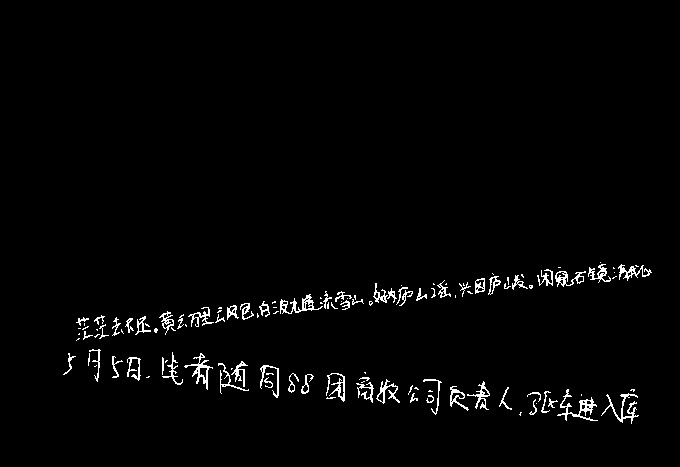 茫茫去不还。黄云万里动风色,白波九道流雪山。好为庐山谣,兴因庐山发。闲窥石镜清我心
5月5日,笔者随同88团商牧公司负责人,驱车进入库